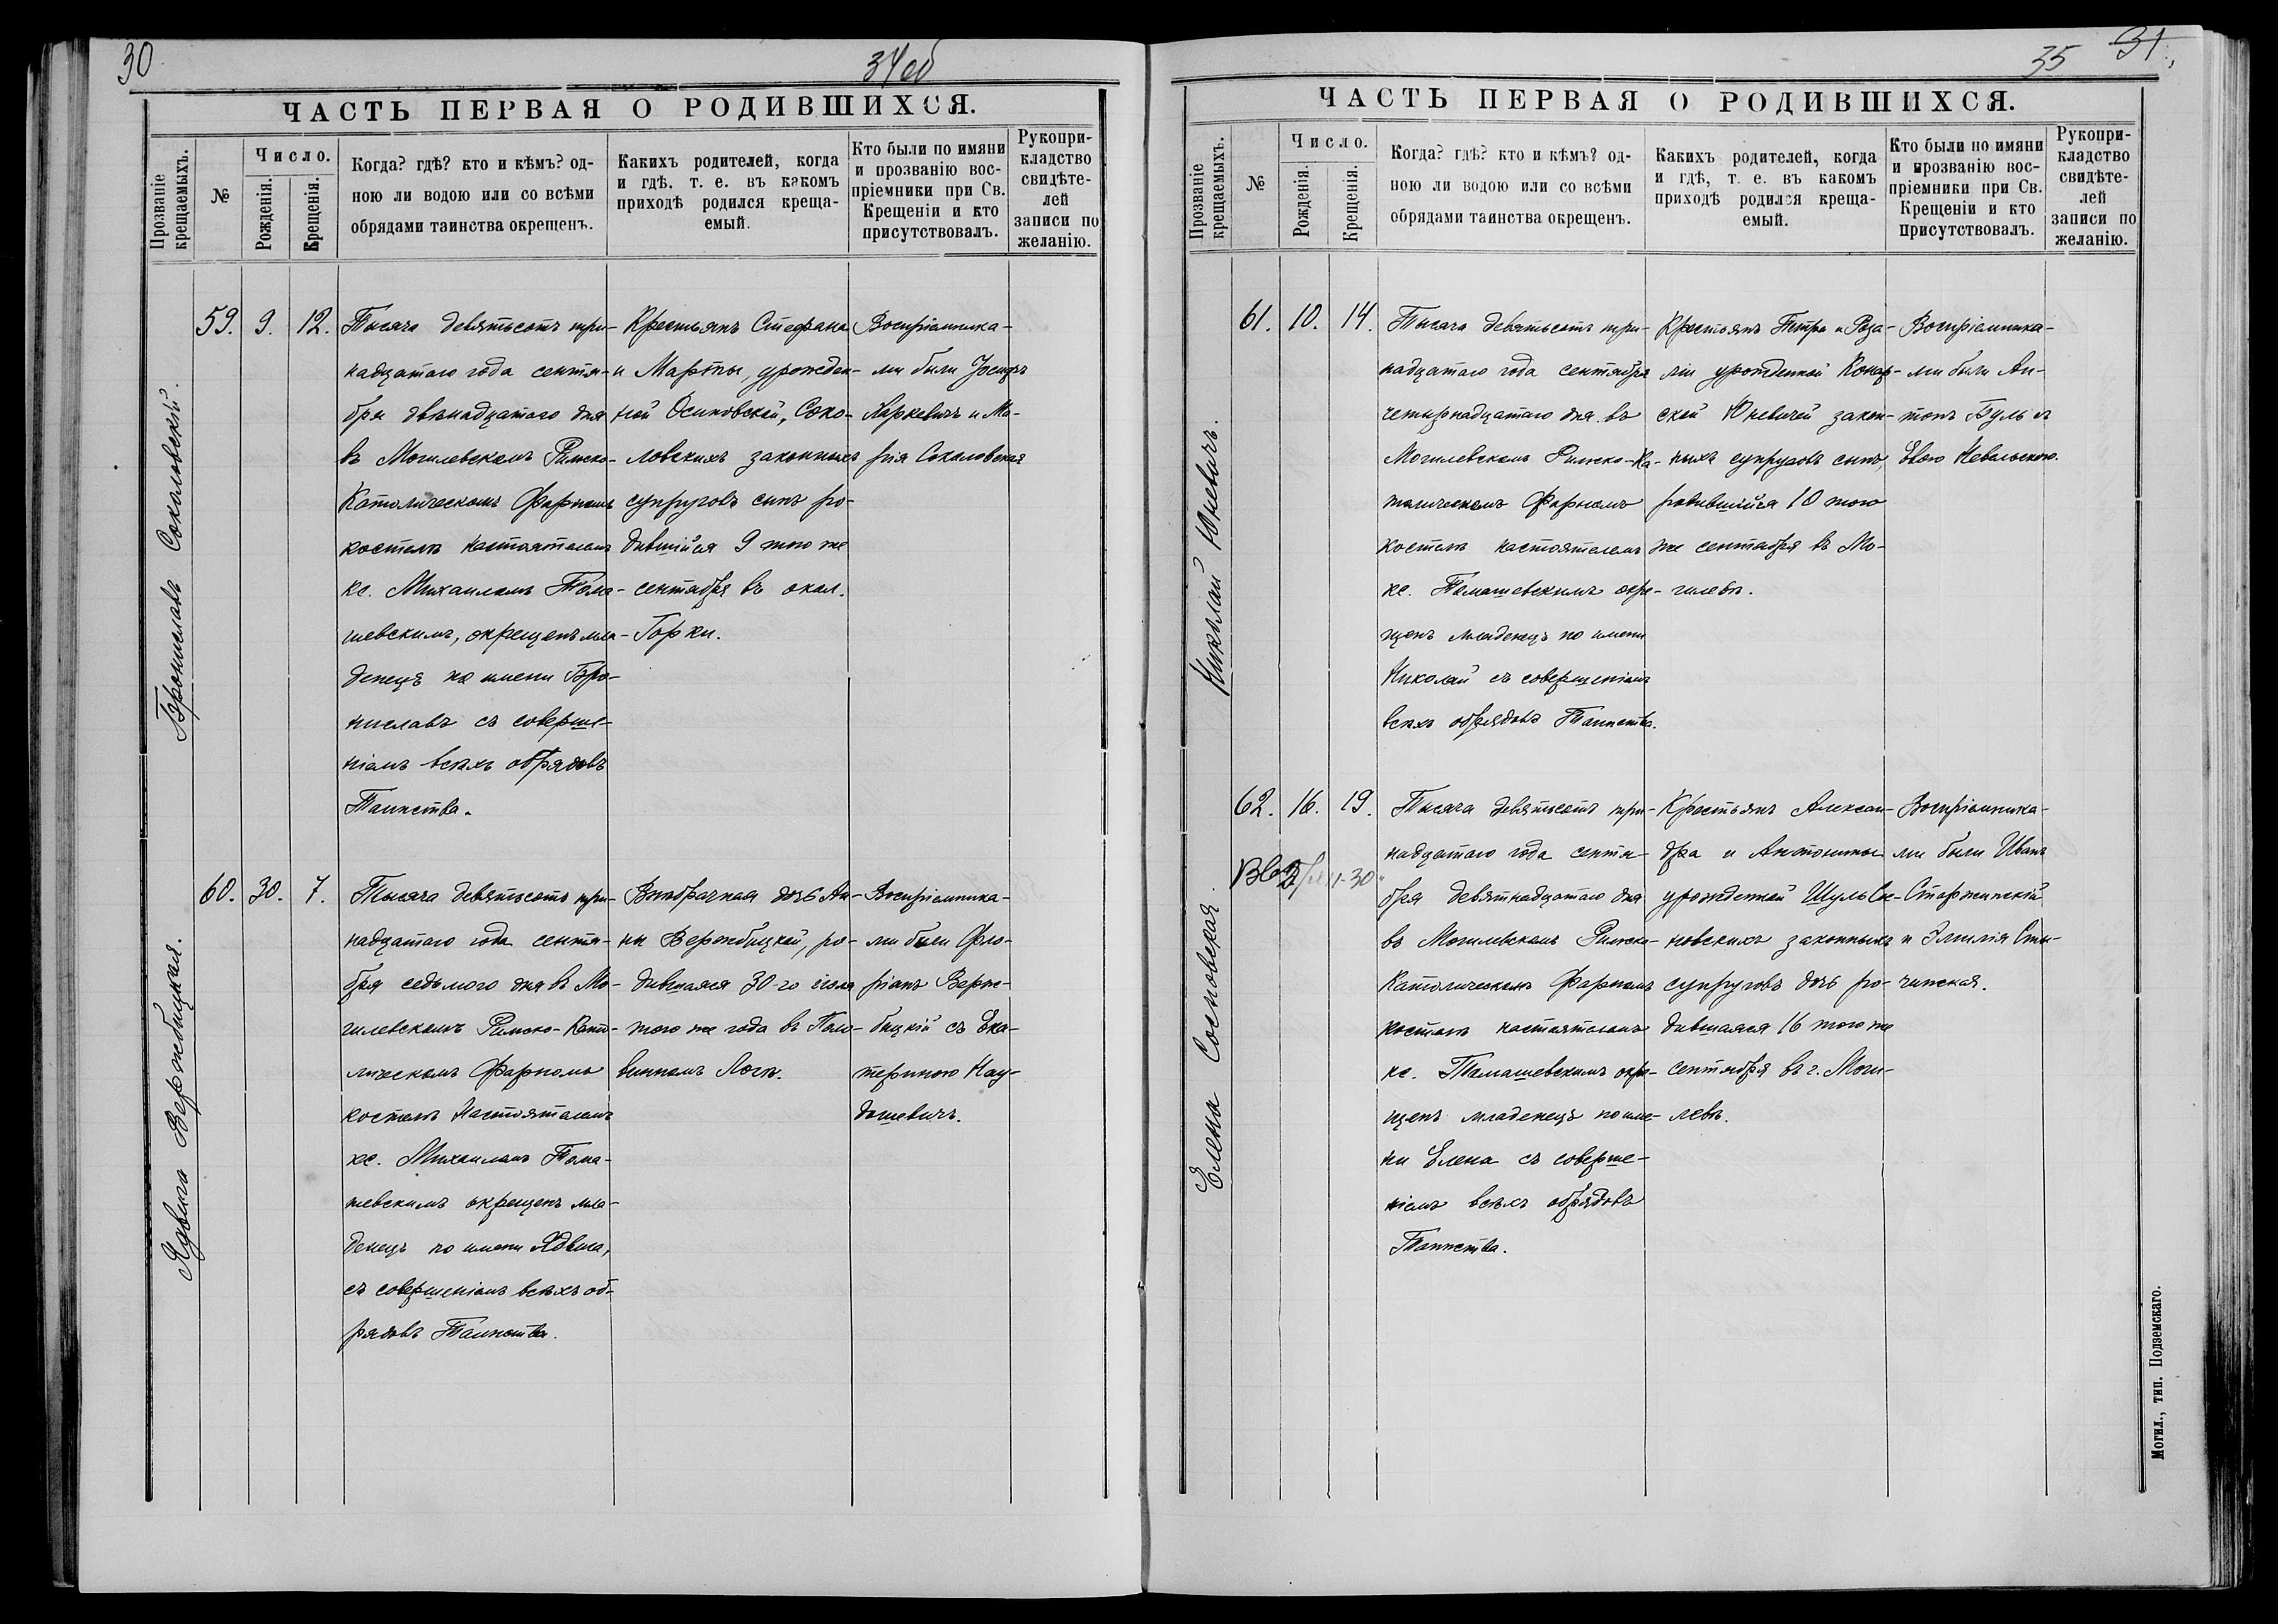 30
34об
ЧАСТЬ ПЕРВАЯ О РОДИВШИХСЯ.
Прозваніе крещаемыхъ.
№
Число.
Рожденія.
Крещенія.
Когда? гдѣ? кто и кѣмъ? од-
ною ли водою или со всѣми
обрядами таинства окрещенъ.
Какихъ родителей, когда
и гдѣ, т. е. въ какомъ
приходѣ родился креща-
емый.
Кто были по имяни
и прозванію вос-
пріемники при Св.
Крещеніи и кто
присутствовалъ.
Рукопри-
кладство
свидѣте-
лей
записи по
желанію.
Брониславъ Соколовскій.
59. 9. 12.
Тысяча девятьсотъ три-
надцатаго года сентя-
бря двѣнадцатаго дня
въ Могилевскомъ Римско-
Католическомъ Фарномъ
костелѣ настоятелемъ
кс. Михаиломъ Тома-
шевскимъ, окрещенъ мла-
денецъ по имени Бро-
ниславъ съ соверше-
ніемъ всѣхъ обрядовъ
Таинства.
Крестьянъ Стефана
и Марты, урожден-
ной Осиповской, Соко-
ловскихъ законныхъ
супруговъ сынъ ро-
дившійся 9 того же
сентября въ окол.
Горки.
Воспріемника-
ми были Іосифъ
Каркевичъ и Ма-
рія Соколовская
Ядвига Вержбицкая.
60. 30. 7.
Тысяча девятьсотъ три-
надцатаго года сентя-
бря седьмого дня въ Мо-
гилевскомъ Римско-Като-
лическомъ Фарномъ
костелѣ Настоятелемъ
кс. Михаиломъ Тома-
шевскимъ окрещенъ мла-
денецъ по имени Ядвига,
съ совершеніемъ всѣхъ об-
рядовъ Таинства.
Внебрачная дочь Ан-
ны Вержбицкой, ро-
дившаяся 30-го іюля
того же года въ Поло-
винномъ Логѣ.
Воспріемника-
ми были Фло-
ріанъ Верж-
бицкій съ Ека-
териною Кау-
дошевичъ.
35
31
ЧАСТЬ ПЕРВАЯ О РОДИВШИХСЯ.
Прозваніе крещаемыхъ.
№
Число.
Рожденія.
Крещенія.
Когда? гдѣ? кто и кѣмъ? од-
ною ли водою или со всѣми
обрядами таинства окрещенъ.
Какихъ родителей, когда
и гдѣ, т. е. въ какомъ
приходѣ родился креща-
емый.
Кто были по имяни
и прозванію вос-
пріемники при Св.
Крещеніи и кто
присутствовалъ.
Рукопри-
кладство
свидѣте-
лей
записи по
желанію.
Николай Юневичъ.
61. 10. 14.
Тысяча девятьсотъ три-
надцатаго года сентября
четырнадцатаго дня въ
Могилевскомъ Римско-Ка-
толическомъ Фарномъ
костелѣ настоятелемъ
кс. Томашевскимъ окре-
щенъ младенецъ по имени
Николай съ совершеніемъ
всѣхъ обрядовъ Таинства.
Крестьянъ Петра и Роза-
ліи урожденной Конар-
ской Юневичей закон-
ныхъ супруговъ сынъ,
родившійся 10 того
же сентября въ Мо-
гилевѣ.
Воспріемника-
ми были Ан-
тонъ Буль съ
Евою Невельскою.
Елена Сосновская
62. 16. 19.
Тысяча девятьсотъ три-
надцатаго года сентя-
бря девятнадцатаго дня
въ Могилевскомъ Римско-
Католическомъ Фарномъ
костелѣ настоятелемъ
кс. Томашевскимъ окре-
щенъ младенецъ по име-
ни Елена съ соверше-
ніемъ всѣхъ обрядовъ
Таинства.
Крестьянъ Алексан-
дра и Антонины
урожденной Шуль Сос-
новскихъ законныхъ
супруговъ дочь ро-
дившаяся 16 того же
сентября въ г. Моги-
левѣ.
Воспріемника-
ми были Иванъ
Старжинскій
и Эмилія Сты-
чинская.
Могил., тип. Подземскаго.